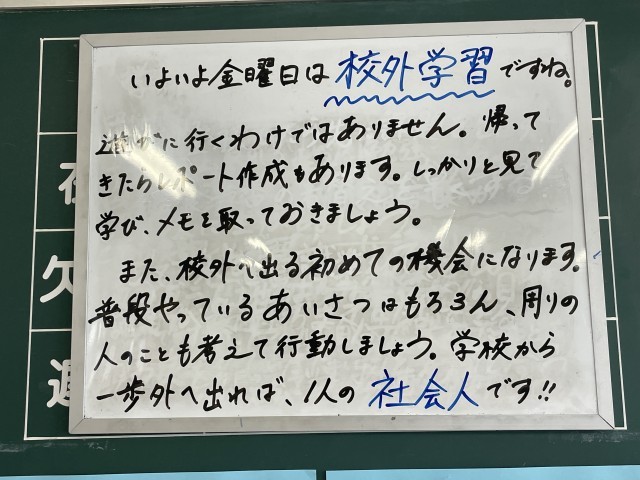 いよいよ金曜日は校外学習ですね。
遊びに行くわけではありません。帰って
きたらレポート作成もあります。しっかりと見て
学び、メモを取っておきましょう。
また、校外へ出る初めての機会になります。
普段やっているあいさつはもろ3ん、周りの
人のことも考えて行動しましょう。学校から
一歩外へ出れば、1人の社会人です!!
欠